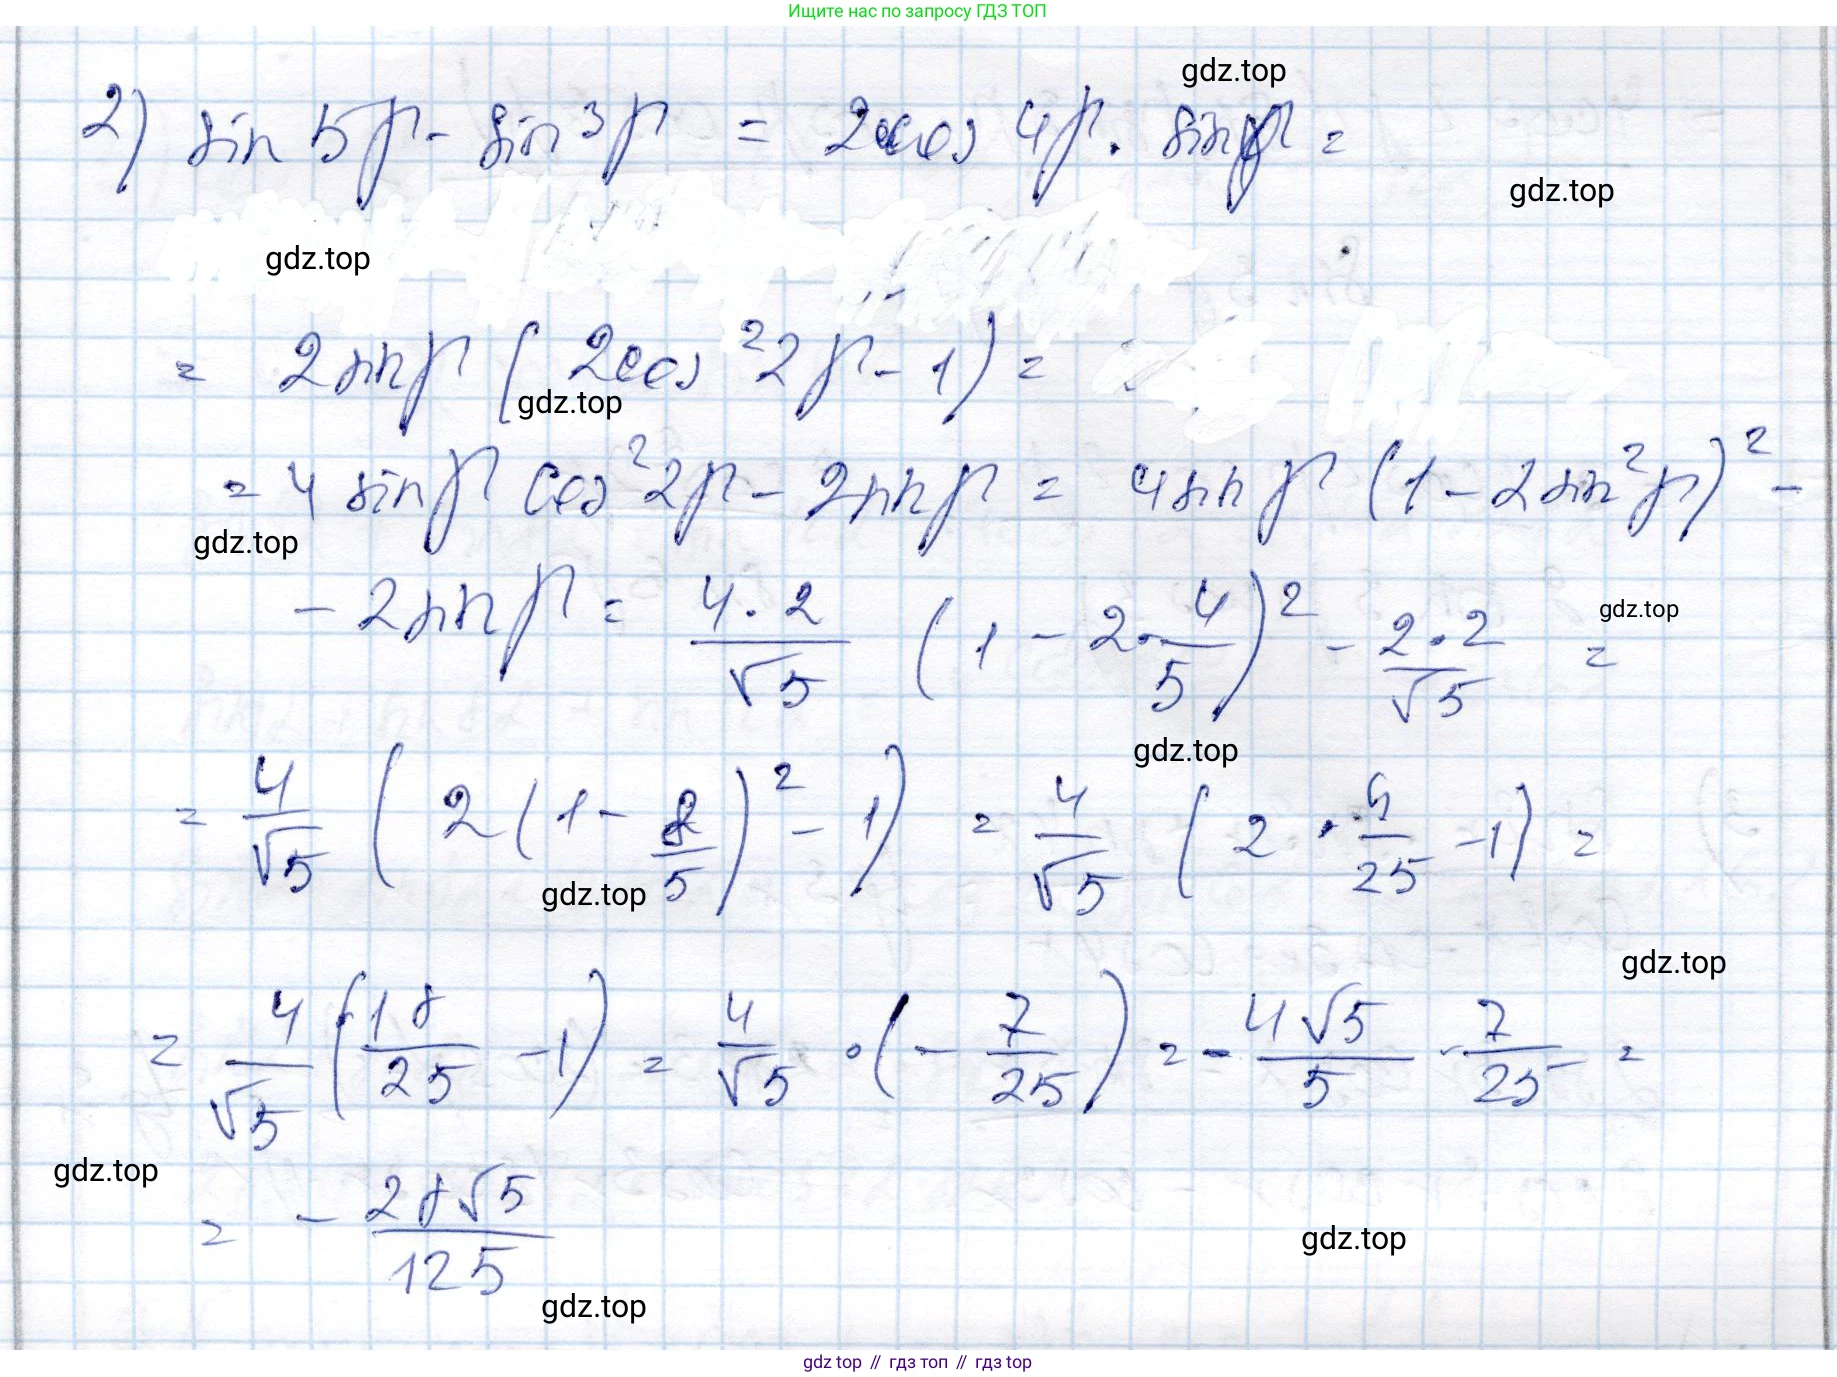 Ищите нас по запросу ГДЗ ТОП
gdz.top
2) sin 5β - sin 3β = 2cos 4β · sin β =
gdz.top
gdz.top
= 2 sin β ( 2cos² 2β - 1) =
gdz.top
= 4 sin β cos² 2β - 2 sin β = 4 sin β (1 - 2 sin² β)² -
gdz.top
- 2 sin β = 4·2/√5 (1 - 2·4/5)² - 2·2/√5 =
gdz.top
gdz.top
= 4/√5 ( 2 (1 - 8/5)² - 1) = 4/√5 ( 2 · 9/25 - 1) =
gdz.top
gdz.top
= 4/√5 (18/25 - 1) = 4/√5 · (- 7/25) = - 4√5/5 · 7/25 =
gdz.top
= - 28√5/125
gdz.top
gdz.top
gdz top // гдз топ // гдз top